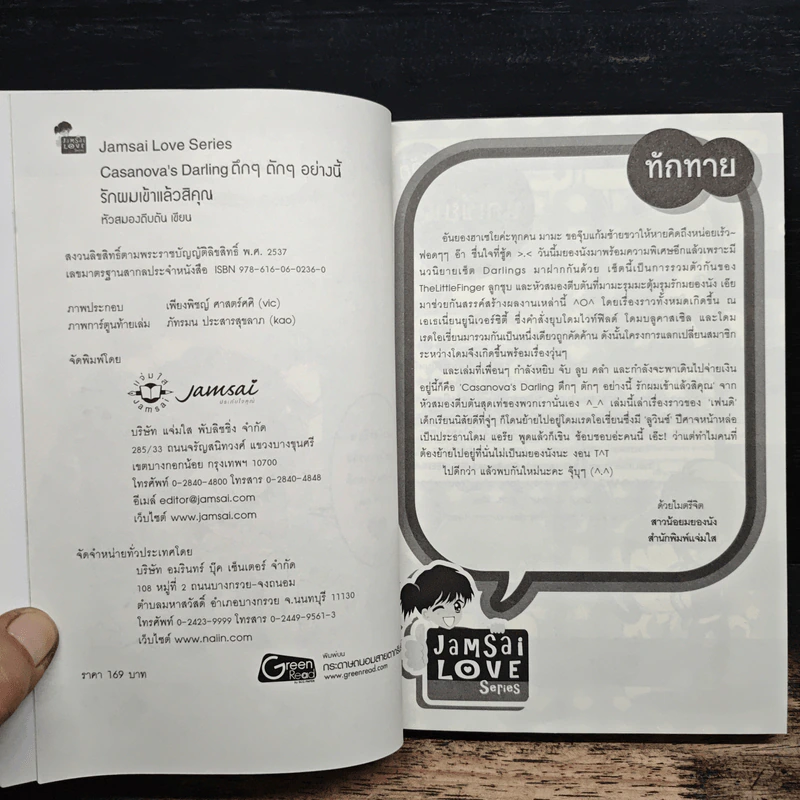 Jamsai Love Series
Casanova's Darling ตึกๆ ตักๆ อย่างนี้
รักผมเข้าแล้วสิคุณ
หัวสมองตีบตัน เขียน
สงวนลิขสิทธิ์ตามพระราชบัญญัติลิขสิทธิ์ พ.ศ. 2537
เลขมาตรฐานสากลประจำหนังสือ ISBN 978-616-06-0236-0
ภาพประกอบ เพียงพิชญ์ ศาสตร์ศศิ (vic)
ภาพการ์ตูนท้ายเล่ม ภัทรมน ประสารสุขลาภ (kao)
จัดพิมพ์โดย
แจ่มใส
Jamsai
Jamsai
บริษัท แจ่มใส พับลิชชิ่ง จำกัด
285/33 ถนนจรัญสนิทวงศ์ แขวงบางขุนศรี
เขตบางกอกน้อย กรุงเทพฯ 10700
โทรศัพท์ 0-2840-4800 โทรสาร 0-2840-4848
อีเมล์ editor@jamsai.com
เว็บไซต์ www.jamsai.com
จัดจำหน่ายทั่วประเทศโดย
บริษัท อมรินทร์ บุ๊ค เซ็นเตอร์ จำกัด
108 หมู่ที่ 2 ถนนบางกรวย-จงถนอม
ตำบลมหาสวัสดิ์ อำเภอบางกรวย จ.นนทบุรี 11130
โทรศัพท์ 0-2423-9999 โทรสาร 0-2449-9561-3
เว็บไซต์ www.naiin.com
ราคา 169 บาท
Green Read
พิมพ์บน
กระดาษถนอมสายตากรีน
www.greenread.com
ทักทาย
อันยองฮาเซโยค่ะทุกคน มามะ ขอจุ๊บแก้มซ้ายขวาให้หายคิดถึงหน่อยเร้ว~
ฟอดๆๆ อ๊า ชื่นใจที่ซู้ด >.< วันนี้มยองนังมาพร้อมความพิเศษอีกแล้วเพราะมี
นวนิยายเซ็ต Darlings มาฝากกันด้วย เซ็ตนี้เป็นการรวมตัวกันของ
TheLittleFinger ลูกชุบ และหัวสมองตีบตันที่มามะรุมมะตุ้มรุมรักมยองนัง เอ๊ย
มาช่วยกันสรรค์สร้างผลงานเหล่านี้ ^O^ โดยเรื่องราวทั้งหมดเกิดขึ้น ณ
เอเธเนี่ยนยูนิเวอร์ซิตี้ ซึ่งคำสั่งยุบโดมไวท์ฟิลด์ โดมบลูคาสเซิล และโดม
เรดโอเชี่ยนมารวมกันเป็นหนึ่งเดียวถูกคัดค้าน ดังนั้นโครงการแลกเปลี่ยนสมาชิก
ระหว่างโดมจึงเกิดขึ้นพร้อมเรื่องวุ่นๆ
และเล่มที่เพื่อนๆ กำลังหยิบ จับ ลูบ คลำ และกำลังจะพาเดินไปจ่ายเงิน
อยู่นี้ก็คือ 'Casanova's Darling ตึกๆ ตักๆ อย่างนี้ รักผมเข้าแล้วสิคุณ' จาก
หัวสมองตีบตันสุดเท่ของพวกเรานั่นเอง ^_^ เล่มนี้เล่าเรื่องราวของ 'เฟนดิ'
เด็กเรียนนิสัยดีที่จู่ๆ ก็โดนย้ายไปอยู่โดมเรดโอเชี่ยนซึ่งมี 'ลูวินซ์' ปีศาจหน้าหล่อ
เป็นประธานโดม แอร๊ย พูดแล้วก็เขิน ช้อบชอบอ่ะคนนี้ เอ๊ะ! ว่าแต่ทำไมคนที่
ต้องย้ายไปอยู่ที่นั่นไม่เป็นมยองนังนะ งอน T^T
ไปดีกว่า แล้วพบกันใหม่นะคะ จุ๊บๆ (^.^)
ด้วยไมตรีจิต
สาวน้อยมยองนัง
สำนักพิมพ์แจ่มใส
Jamsai
LOVE
Series